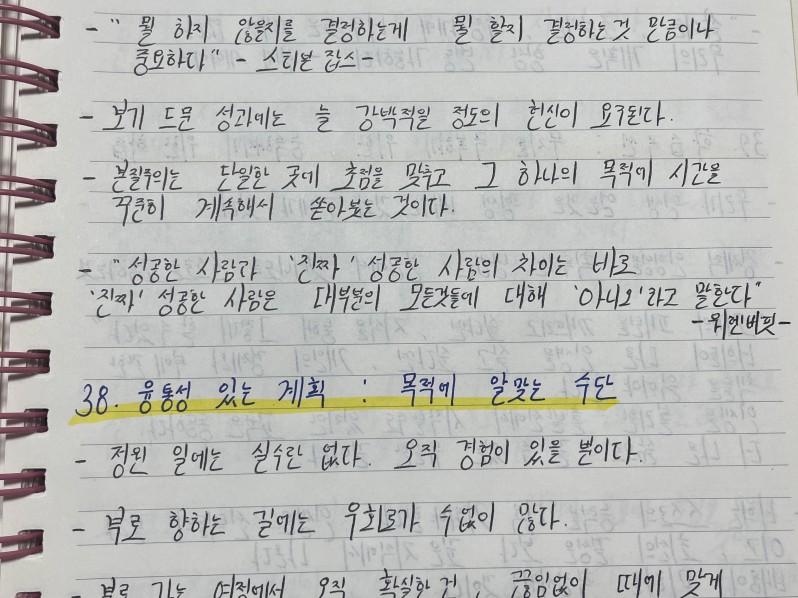 - " 뭘 하지 않을지를 결정하는게 뭘 할지 결정하는 것 만큼이나
중요하다" - 스티븐 잡스 -
- 보기 드문 성과에는 늘 강박적일 정도의 헌신이 요구된다.
- 본질주의는 단일한 곳에 초점을 맞추고 그 하나의 목적에 시간을
꾸준히 계속해서 쏟아붓는 것이다.
- " 성공한 사람과 '진짜' 성공한 사람의 차이는 바로
'진짜' 성공한 사람은 대부분의 모든것들에 대해 '아니오'라고 말한다"
- 워렌버핏 -
38. 융통성 있는 계획 : 목적에 알맞는 수단
- 정왼 일에는 실수란 없다. 오직 경험이 있을 뿐이다.
- 부로 향하는 길에는 우회로가 수없이 많다.
- 부로 가는 여정에서 오직 확실한 건, 끊임없이 때에 맞게